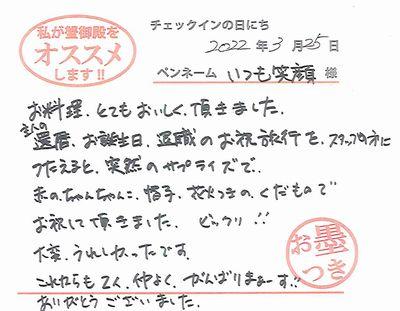 私が蟹御殿を
オススメ
します!!
チェックインの日にち
2022年3月25日
ペンネーム いつも笑顔 様
お料理、とてもおいしく、頂きました。
主人の
還暦、お誕生日、退職のお祝旅行を、スタッフの方に
つたえると、突然のサプライズで、
赤のちゃんちゃんこ、帽子、花火つきの、くだもので
お祝して頂きました、ビックリ!!
大変、うれしかったです。
これからも2人、仲よく、がんばりまぁーす!!
ありがとうございました。
お墨
つき